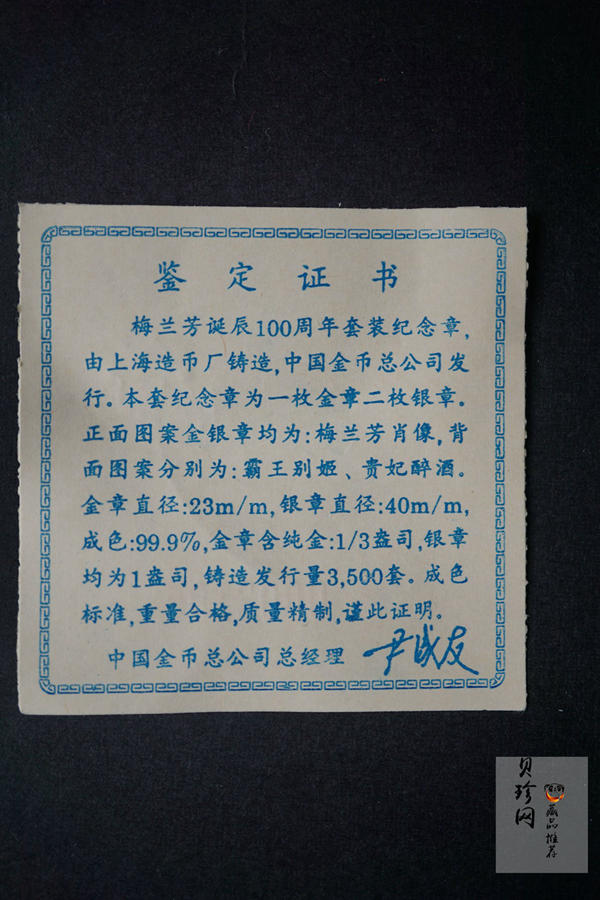 鉴定证书
梅兰芳诞辰100周年套装纪念章,
由上海造币厂铸造,中国金币总公司发
行。本套纪念章为一枚金章二枚银章。
正面图案金银章均为:梅兰芳肖像,背
面图案分别为:霸王别姬、贵妃醉酒。
金章直径:23m/m,银章直径:40m/m,
成色:99.9%,金章含纯金:1/3盎司,银章
均为1盎司,铸造发行量3,500套。成色
标准,重量合格,质量精制,谨此证明。
中国金币总公司总经理 尹成友
贝珍网
藏品推荐